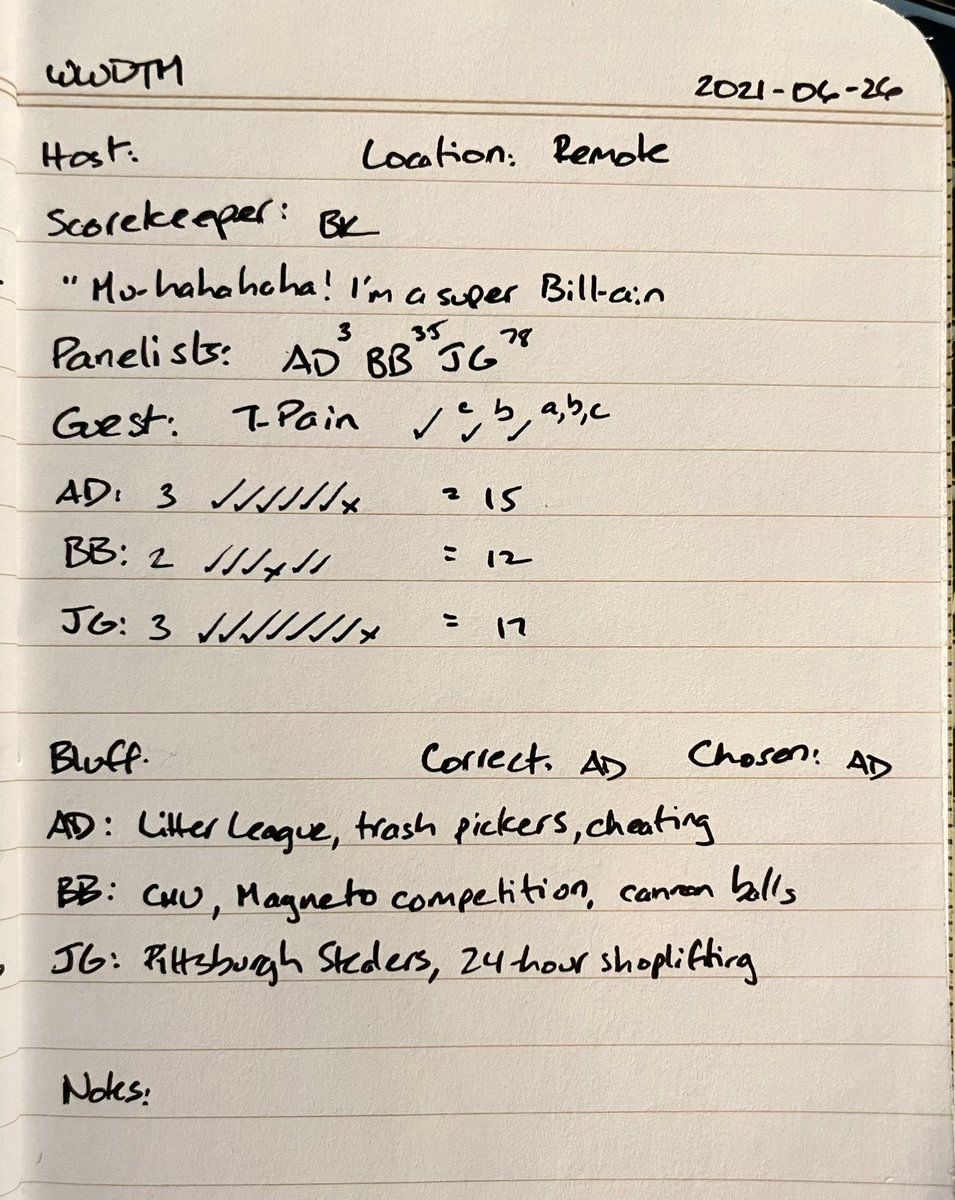 WWDTM 2021-06-26
Host: Location: Remote
Scorekeeper: BK
"Mu-hahahaha! I'm a super Bill-ain
Panelists: AD³ BB³⁵ JG⁷⁸
Guest: T-Pain ✓ c ✓ b ✓ a,b,c
AD: 3 ✓✓✓✓✓✓x = 15
BB: 2 ✓✓✓x✓✓ = 12
JG: 3 ✓✓✓✓✓✓✓x = 17
Bluff. Correct: AD Chosen: AD
AD: Litter League, trash pickers, cheating
BB: CMU, Magneto competition, cannon balls
JG: Pittsburgh Stealers, 24-hour shoplifting
Notes: